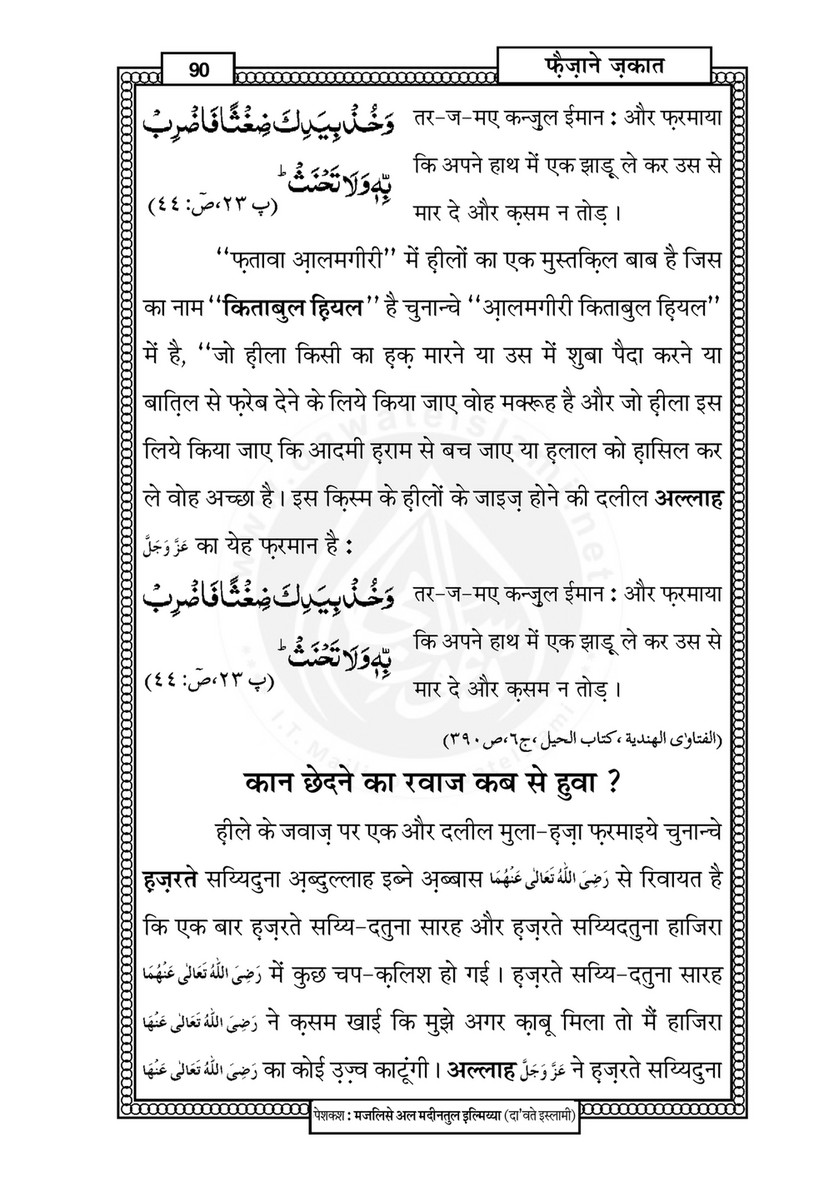 90
फ़ैज़ाने ज़कात
وَخُذْ بِيَدِكَ ضِغْثًا فَاضْرِبْ
بِّهٖ وَلَا تَحْنَثْ ؕ
(پ ۲۳، صٓ: ٤٤)
तर-ज-मए कन्ज़ुल ईमान : और फ़रमाया
कि अपने हाथ में एक झाड़ू ले कर उस से
मार दे और क़सम न तोड़ ।
‘‘फ़तावा आ़लमगीरी’’ में ह़ीलों का एक मुस्तक़िल बाब है जिस
का नाम ‘‘किताबुल ह़ियल’’ है चुनान्चे ‘‘आ़लमगीरी किताबुल ह़ियल’’
में है, ‘‘जो ह़ीला किसी का ह़क़ मारने या उस में शुबा पैदा करने या
बातिल से फ़रेब देने के लिये किया जाए वोह मक्रूह है और जो ह़ीला इस
लिये किया जाए कि आदमी ह़राम से बच जाए या ह़लाल को ह़ासिल कर
ले वोह अच्छा है । इस क़िस्म के ह़ीलों के जाइज़ होने की दलील अल्लाह
عَزَّ وَجَلَّ का येह फ़रमान है :
وَخُذْ بِيَدِكَ ضِغْثًا فَاضْرِبْ
بِّهٖ وَلَا تَحْنَثْ ؕ
(پ ۲۳، صٓ: ٤٤)
तर-ज-मए कन्ज़ुल ईमान : और फ़रमाया
कि अपने हाथ में एक झाड़ू ले कर उस से
मार दे और क़सम न तोड़ ।
(الفتاوٰی الهندية ، كتاب الحيل ،ج٦،ص ٣٩٠)
कान छेदने का रवाज कब से हुवा ?
ह़ीले के जवाज़ पर एक और दलील मुला-ह़ज़ा फ़रमाइये चुनान्चे
ह़ज़रते सय्यिदुना अ़ब्दुल्लाह इब्ने अ़ब्बास رَضِیَ اللّٰہُ تَعَالٰی عَنْہُمَا से रिवायत है
कि एक बार ह़ज़रते सय्यि-दतुना सारह और ह़ज़रते सय्यिदतुना हाजिरा
رَضِیَ اللّٰہُ تَعَالٰی عَنْہُمَا में कुछ चप-क़लिश हो गई । ह़ज़रते सय्यि-दतुना सारह
رَضِیَ اللّٰہُ تَعَالٰی عَنْہَا ने क़सम खाई कि मुझे अगर क़ाबू मिला तो मैं हाजिरा
رَضِیَ اللّٰہُ تَعَالٰی عَنْہَا का कोई उ़ज़्व काटूंगी । अल्लाह عَزَّ وَجَلَّ ने ह़ज़रते सय्यिदुना
पेशकश : मजलिसे अल मदीनतुल इल्मिय्या (दा'वते इस्लामी)